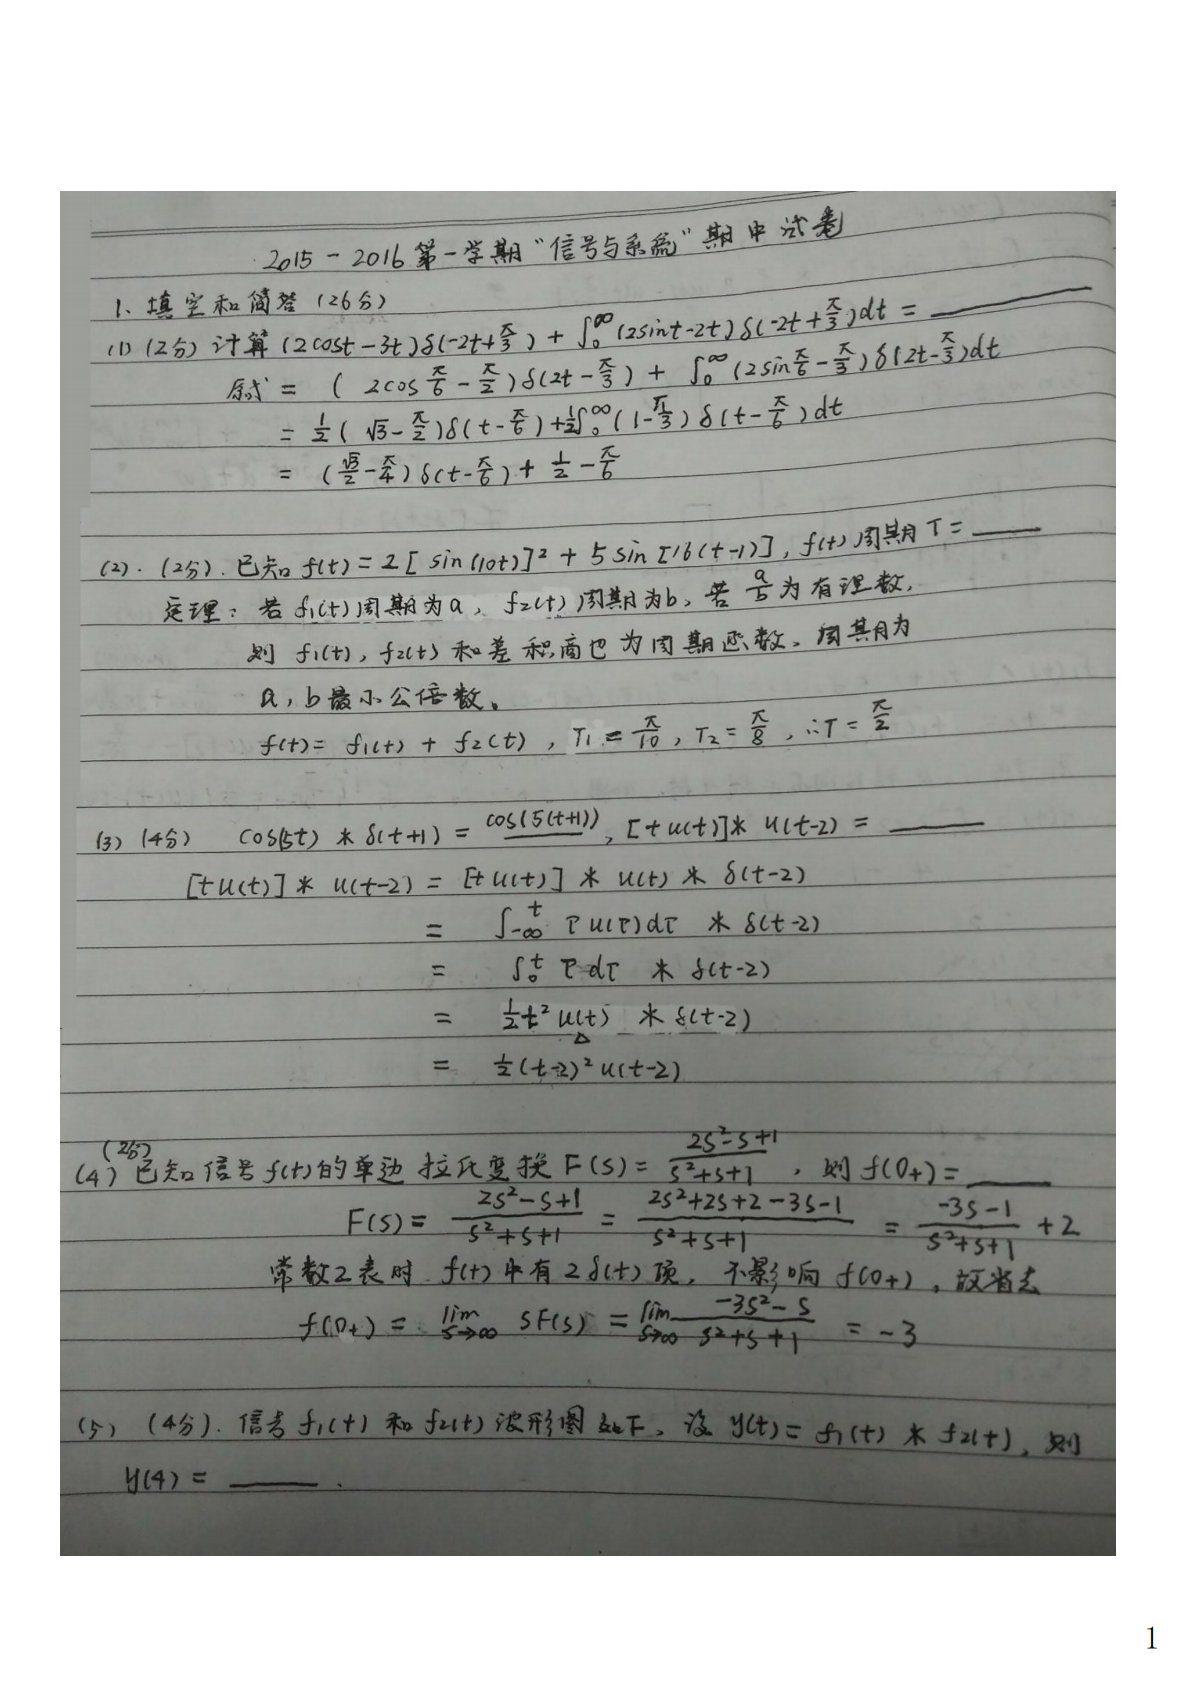 2015-2016第一学期"信号与系统"期中试卷
1、填空和简答(26分)
(1) (2分) 计算(2cost-3t)δ(-2t+π/3) + ∫₀^∞ (2sint-2t)δ(-2t+π/3)dt = ____
原式 = ( 2cosπ/6 - π/2 )δ(2t-π/3) + ∫₀^∞ (2sinπ/6 - π/3)δ(2t-π/3)dt
= 1/2 ( √3 - π/2 )δ(t-π/6) + 1/2∫₀^∞ (1-π/3) δ(t-π/6)dt
= (√3/2 - π/4) δ(t-π/6) + 1/2 - π/6
(2). (2分). 已知 f(t) = 2[ sin(10t)]² + 5 sin [16(t-1)], f(t)周期 T = ____
定理: 若 f₁(t)周期为a, f₂(t)周期为b, 若 a/b 为有理数,
则 f₁(t), f₂(t) 和差积商也为周期函数、周其月为
a, b最小公倍数。
f(t) = f₁(t) + f₂(t), T₁ = π/10, T₂ = π/8, ∴T = π/2
(3) (4分) cos(5t) * δ(t+1) = cos(5(t+1)), [t u(t)]* u(t-2) = ____
[t u(t)] * u(t-2) = [t u(t)] * u(t) * δ(t-2)
= ∫₋∞^t τ u(τ)dτ * δ(t-2)
= ∫₀^t τ dτ * δ(t-2)
= 1/2 t² u(t) * δ(t-2)
= 1/2 (t-2)² u(t-2)
(2分)
(4) 已知信号f(t)的单边拉氏变换 F(s) = (2s²-s+1)/(s²+s+1), 则 f(0₊) = ____
F(s) = (2s²-s+1)/(s²+s+1) = (2s²+2s+2-3s-1)/(s²+s+1) = (-3s-1)/(s²+s+1) + 2
常数2表时 f(t)中有2δ(t)项, 不影响 f(0₊), 故省去
f(0₊) = lim s→∞ sF(s) = lim s→∞ (-3s²-s)/(s²+s+1) = -3
(5) (4分). 信号 f₁(t) 和 f₂(t) 波形图如下, 设 y(t) = f₁(t) * f₂(t), 则
y(4) = ____ .
1